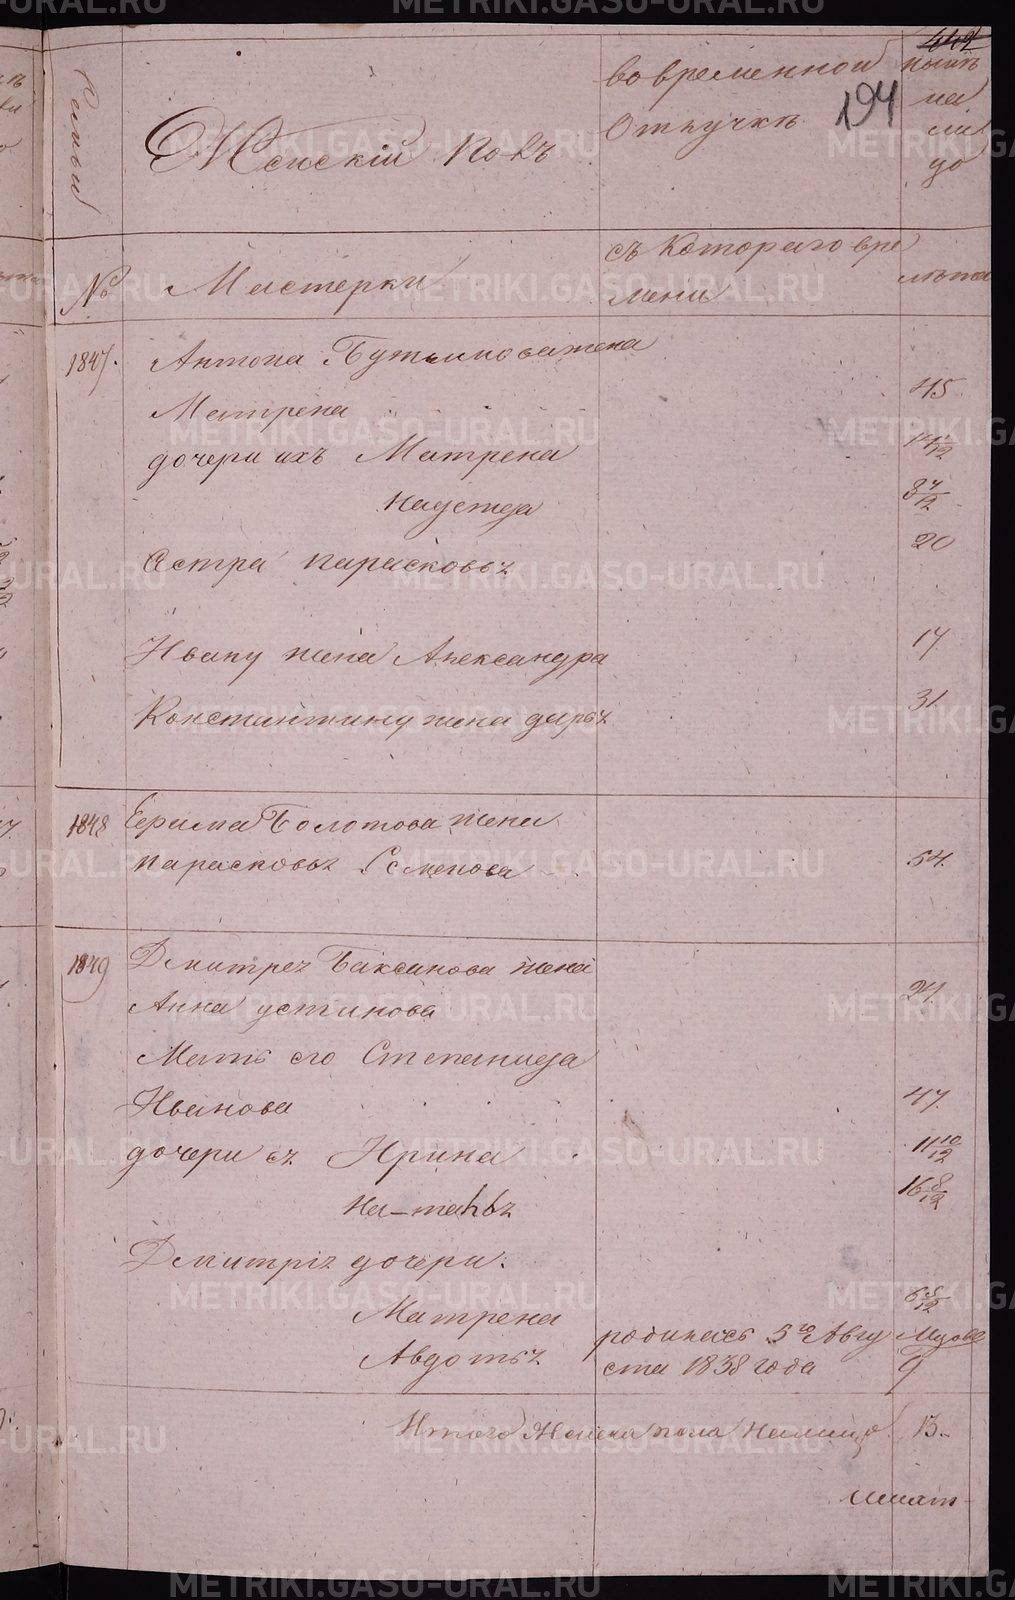 442
194
Семьи
Женскій полъ
во временной
Отлучкѣ
нынѣ
на
ли
цо
№
Мастерки
съ котораго вре
мени
лѣта
1847.
Антона жена
Матрена
45
дочери ихъ Матрена
Надежда
8 4/12
Сестра Парасковья
20
Ивану жена Александра
17
Константину жена Дарья
31.
1848
Ерима Болотова жена
Парасковья Семенова
54.
1849
Дмитрея Баксанова жена
Анна Устинова
24.
Мать его Степанида
Иванова
47.
дочери ея Ирина
11 10/12
На-талья
16 8/12
Дмитрія дочери:
Матрена
6 5/12
Авдотья
родилась 5го Авгу
ста 1838 года
9
Итого Женска пола Налицо
13.
METRIKI.GASO-URAL.RU